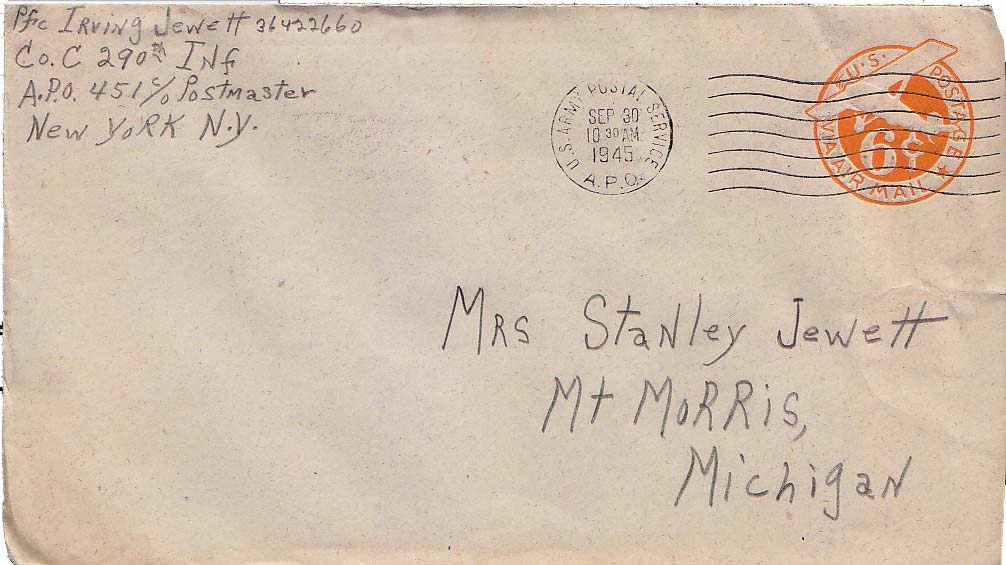 Pfc Irving Jewett 36422660
Co. C 290th Inf
A.P.O. 451 c/o Postmaster
New York N.Y.
U.S. ARMY POSTAL SERVICE
SEP 30
10 30 AM
1945
A.P.O.
U.S. POSTAGE
6¢
VIA AIR MAIL
Mrs Stanley Jewett
Mt Morris,
Michigan